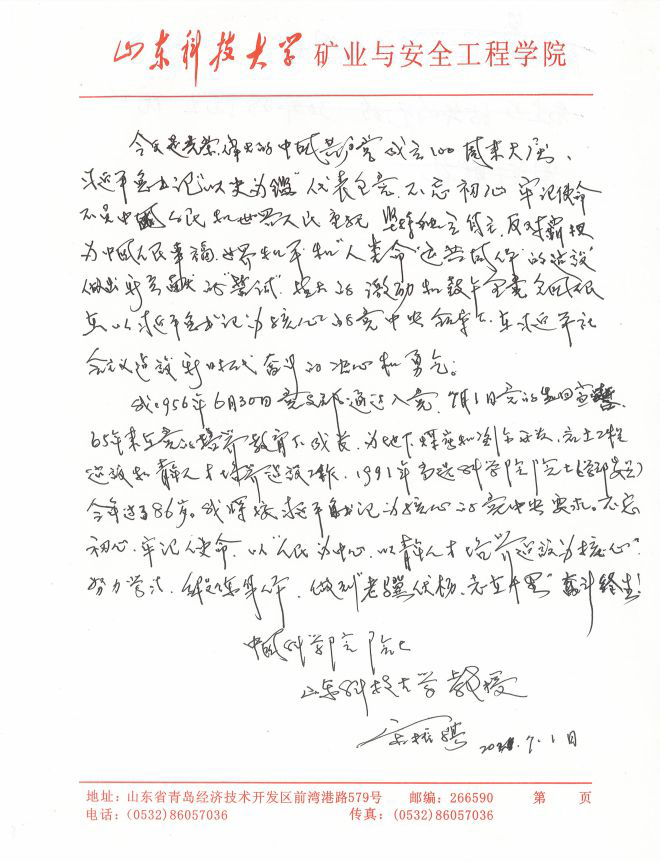 山东科技大学 矿业与安全工程学院
今天是光荣伟大的中国共产党成立100周年大庆、
习近平总书记"以史为鉴"代表全党、不忘初心 牢记使命
不负中国人民和世界人民重托 坚持独立自主，反对霸权
为中国人民幸福、世界和平和"人类命运共同体"的建设
做出新贡献的"誓词" 极大的激励和鼓午全党全国人民
在以习近平总书记为核心的党中央领导下、在习近平社
会主义建设新时代奋斗的决心和勇气。
我1956年6月30日党支部通过入党，7月1日党的生日宣誓、
65年来在党的培养教育下成长，为地下煤炭和金矿开发、岩土工程
建设和青年人才培养建设工作，1991年当选科学院院士(学部委员)
今年进了86岁。我牢按习近平总书记为核心的党中央要求。不忘
初心、牢记使命，以"人民为中心、以青年人才培养建设为核心"
努力学习、继续工作，做到"老骥伏枥、志在千里"奋斗终生！
中国科学院 院士
山东科技大学 教授
宋振骐 2021.7.1日
地址：山东省青岛经济技术开发区前湾港路579号 邮编：266590 第 页
电话：(0532)86057036 传真：(0532)86057036